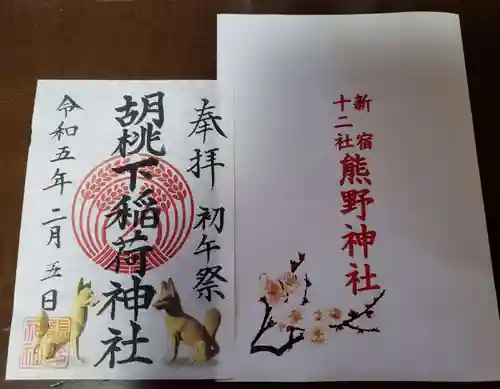 奉拝 初午祭
胡桃下稲荷神社
令和五年 二月 五日
新宿
十二社
熊野神社